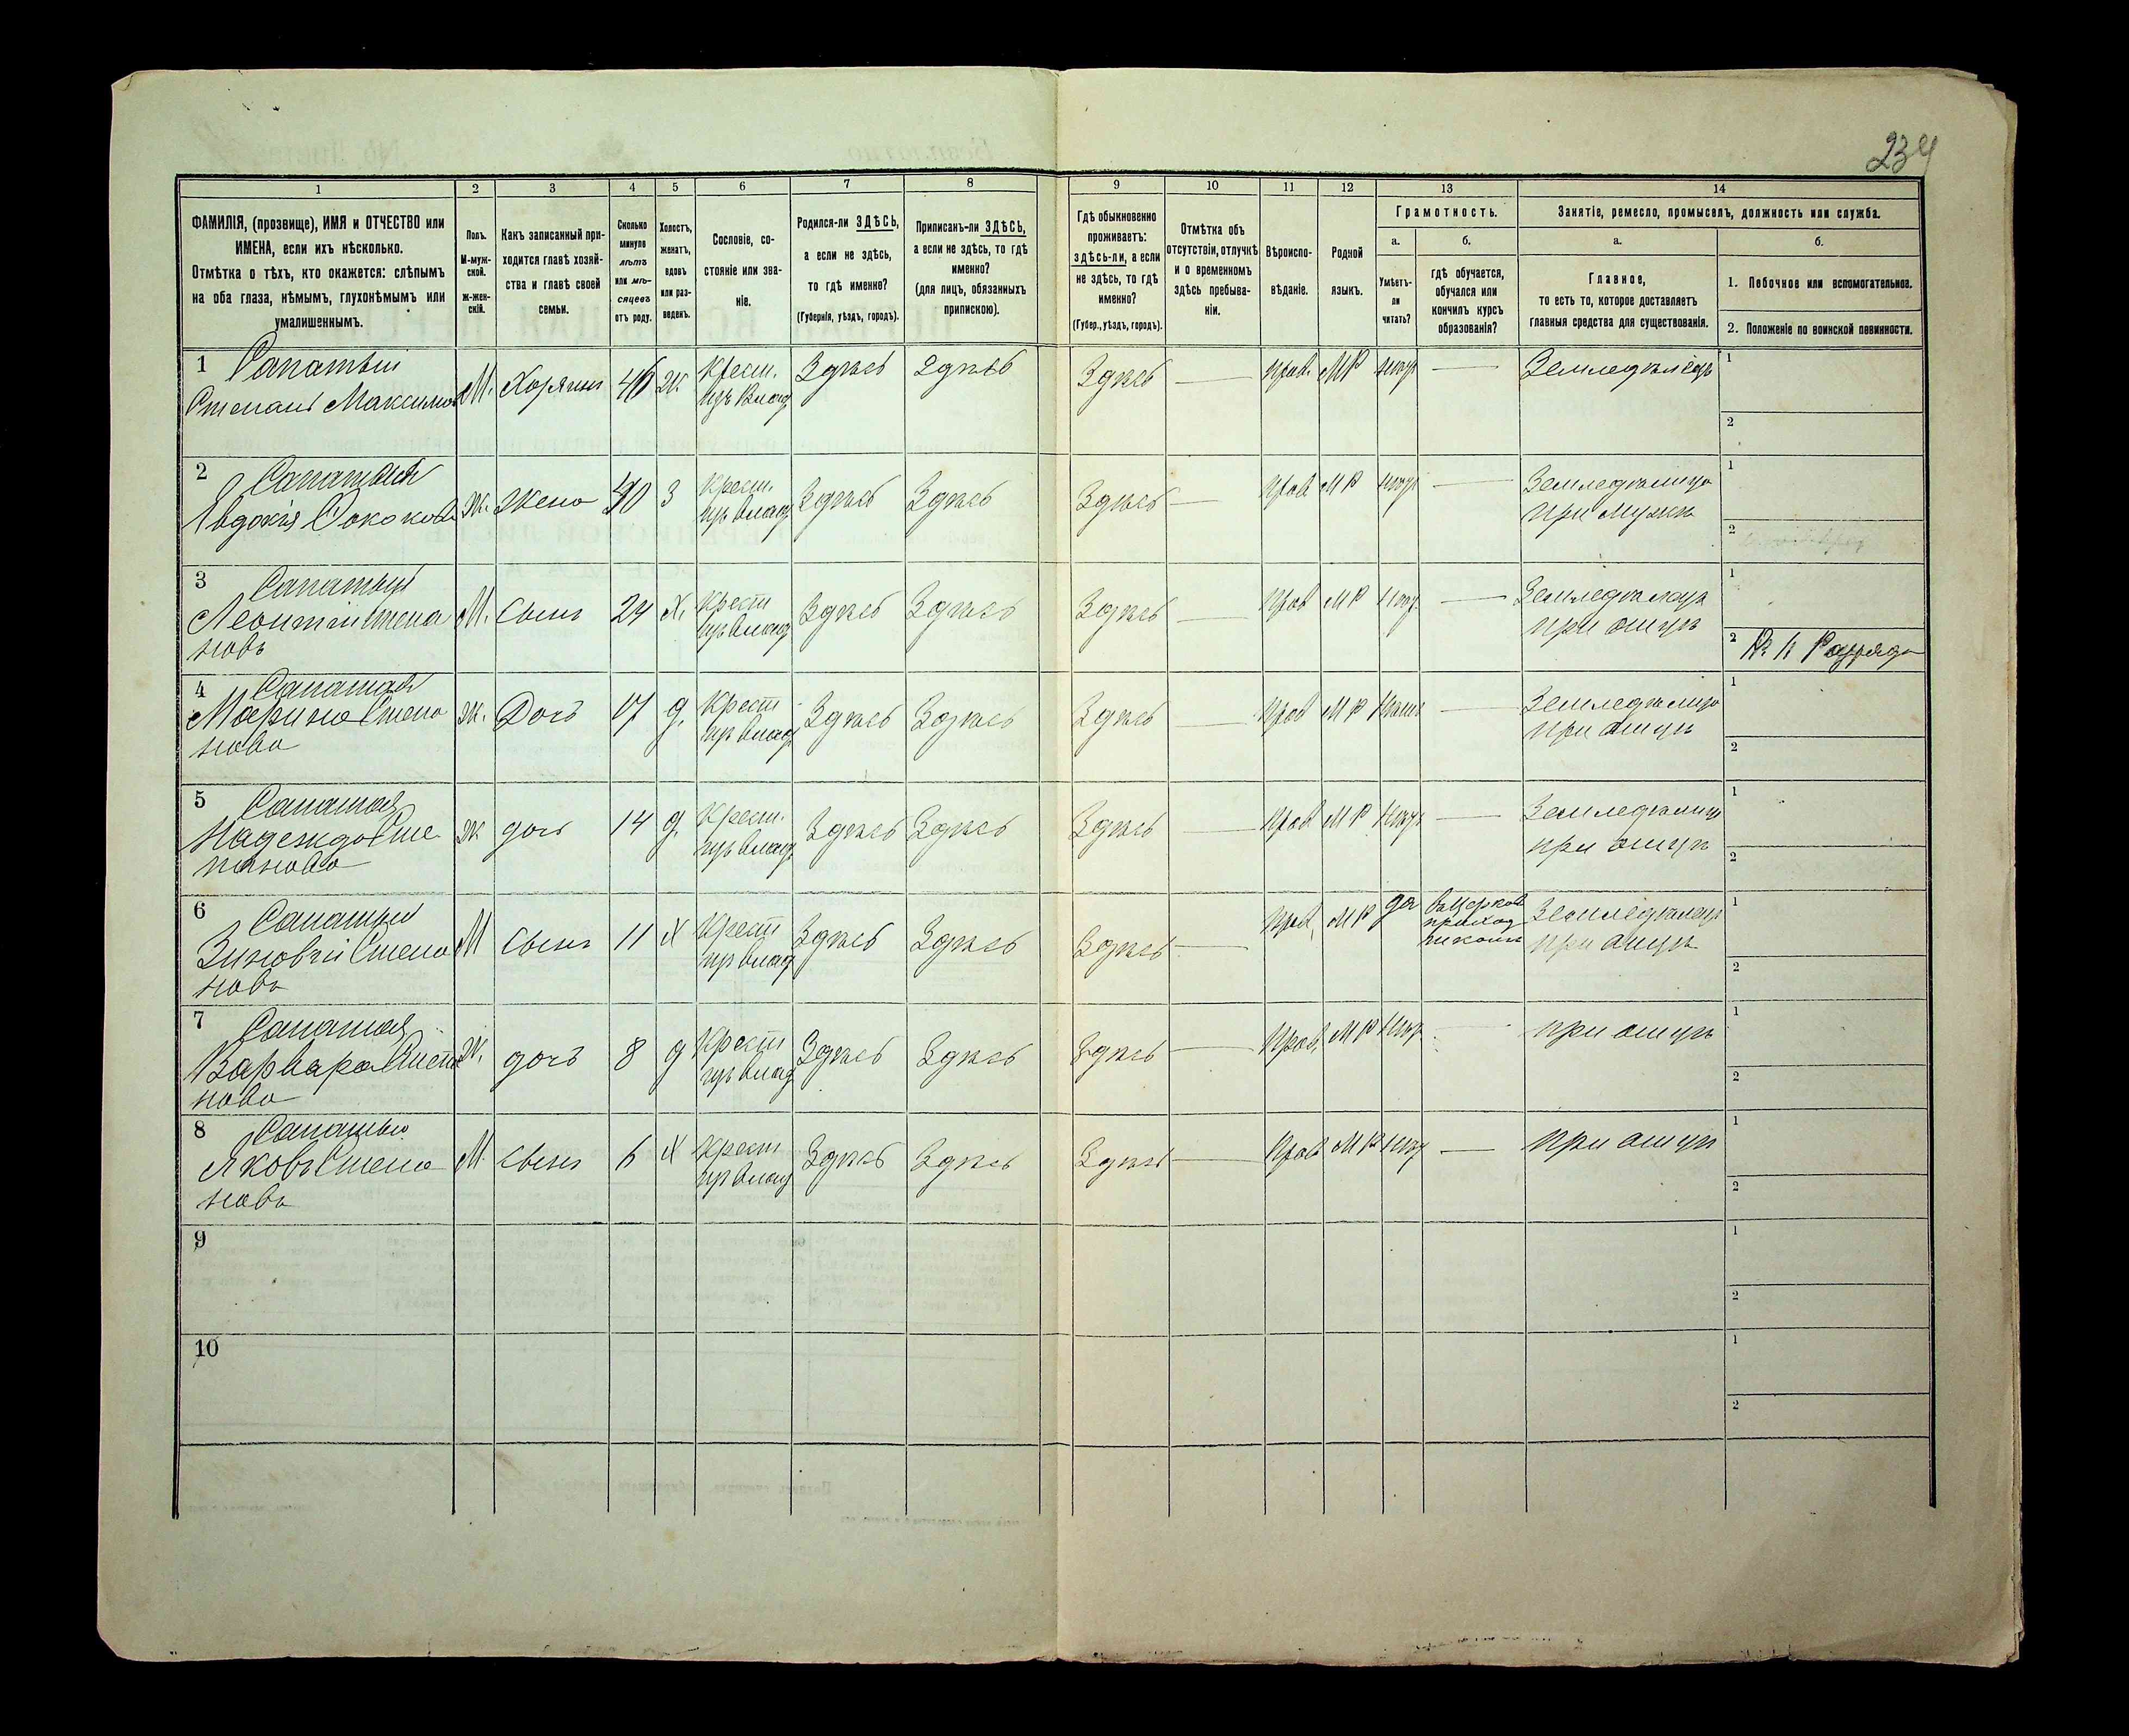 234
1 2 3 4 5 6 7 8 9 10 11 12 13 14
ФАМИЛІЯ, (прозвище), ИМЯ и ОТЧЕСТВО или
ИМЕНА, если ихъ нѣсколько.
Отмѣтка о тѣхъ, кто окажется: слѣпымъ
на оба глаза, нѣмымъ, глухонѣмымъ или
умалишеннымъ.
Полъ.
М-муж-
ской.
ж-жен-
скій.
Какъ записанный при-
ходится главѣ хозяй-
ства и главѣ своей
семьи.
Сколько
минуло
лѣтъ
или мѣ-
сяцевъ
отъ роду.
Холостъ,
женатъ,
вдовъ
или раз-
веденъ.
Сословіе, со-
стояніе или зва-
ніе.
Родился-ли ЗДѢСЬ,
а если не здѣсь,
то гдѣ именно?
(Губернія, уѣздъ, городъ).
Приписанъ-ли ЗДѢСЬ,
а если не здѣсь, то гдѣ
именно?
(для лицъ, обязанныхъ
припискою).
Гдѣ обыкновенно
проживаетъ:
здѣсь-ли, а если
не здѣсь, то гдѣ
именно?
(Губер., уѣздъ, городъ).
Отмѣтка объ
отсутствіи, отлучкѣ
и о временномъ
здѣсь пребыва-
ніи.
Вѣроиспо-
вѣданіе.
Родной
языкъ.
Грамотность.
а.
Умѣетъ-
ли
читать?
б.
гдѣ обучается,
обучался или
кончилъ курсъ
образованія?
Занятіе, ремесло, промыселъ, должность или служба.
а.
Главное,
то есть то, которое доставляетъ
главныя средства для существованія.
б.
1. Побочное или вспомогательное.
2. Положеніе по воинской повинности.
1 Сапатый
Степанъ Максимов М. Хозяинъ 46 Ж Крест. Здѣсь Здѣсь Здѣсь — прав. МР — Земледѣлецъ 1
изъ Влад
2
2
Евдокія М. Жена 40 З Крест. Здѣсь Здѣсь Здѣсь — прав МР — Земледѣлица 1
изъ влад при мужѣ
2
3 Сапатый
Леонтій Степа М. Сынъ 24 Х. Крест Здѣсь Здѣсь Здѣсь — прав МР — Земледѣлецъ 1
новъ изъ влад при отцѣ
2 Разряда
4 Сапатая
Марина Степа Ж. Дочь 17 д. Крест Здѣсь Здѣсь Здѣсь — прав МР — Земледѣлица 1
нова изъ влад при отцѣ
2
5 Сапатая
Надежда Сте Ж дочь 14 д. Крест. Здѣсь Здѣсь Здѣсь — прав МР — Земледѣлица 1
панова изъ влад при отцѣ
2
6 Сапатый
Зиновій Степа М Сынъ 11 Х Крест Здѣсь Здѣсь Здѣсь — прав. МР да въ Церков Земледѣлецъ 1
новъ изъ влад приход при отцѣ
школѣ
2
7 Сапатая
Варвара Степа Ж. дочь 8 д Крест Здѣсь Здѣсь Здѣсь — прав. МР — при отцѣ 1
нова изъ влад
2
8 Сапатый
Яковъ Степа М. Сынъ 6 Х Крест Здѣсь Здѣсь Здѣсь — прав МР — при отцѣ 1
новъ изъ влад
2
9 1
2
10 1
2